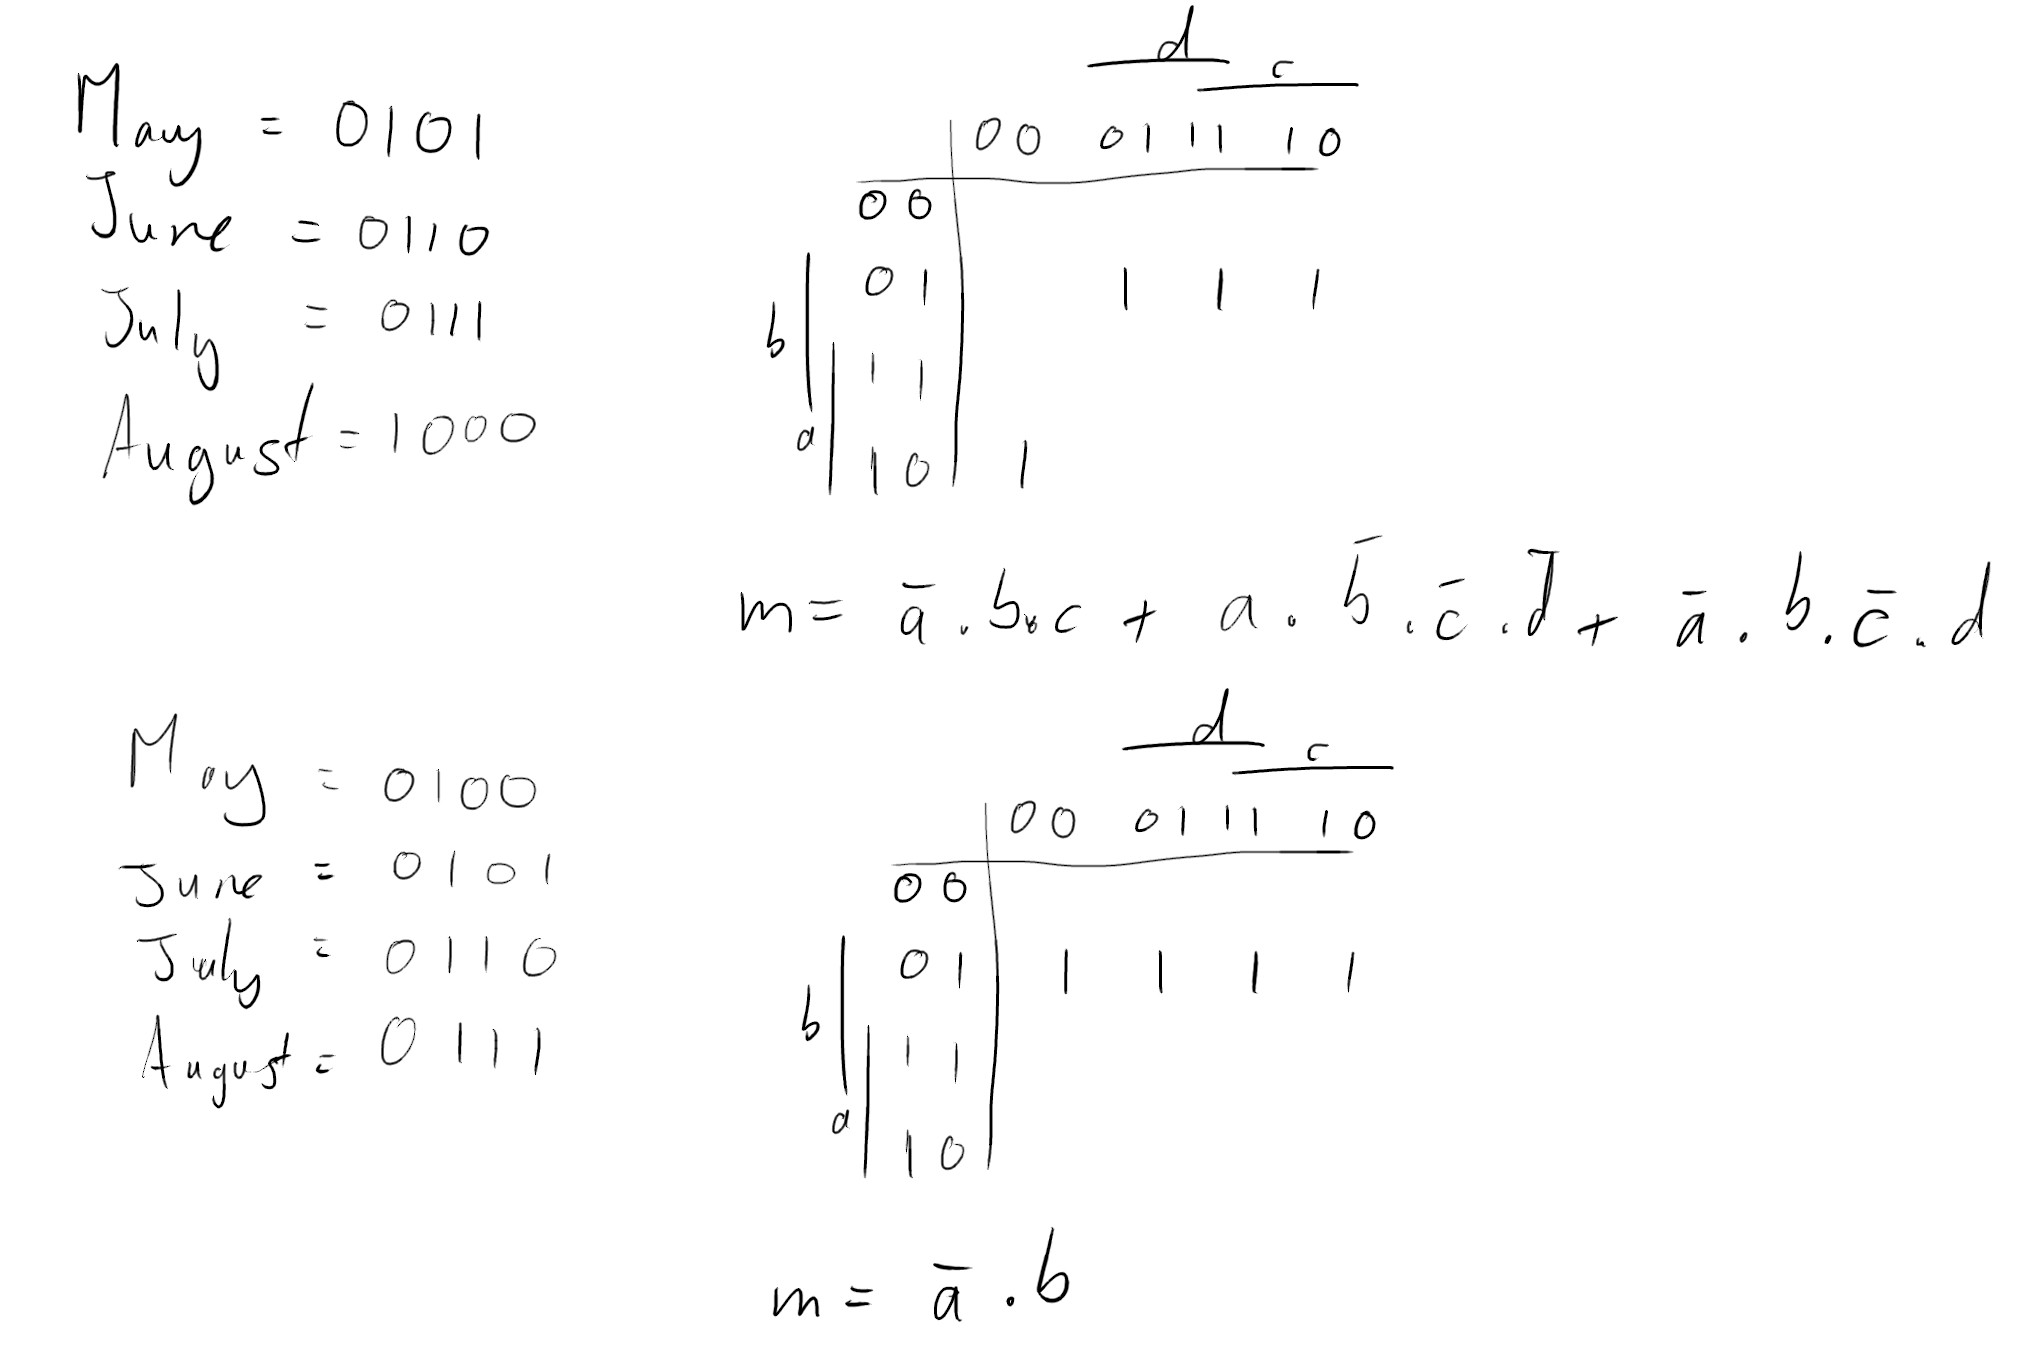 May = 0101
June = 0110
July = 0111
August = 1000
d
c
00 01 11 10
00
01 1 1 1
b
11
a
10 1
m = a̅ . b . c + a . b̅ . c̅ . d̅ + a̅ . b . c̅ . d
May = 0100
June = 0101
July = 0110
August = 0111
d
c
00 01 11 10
00
01 1 1 1 1
b
11
a
10
m = a̅ . b